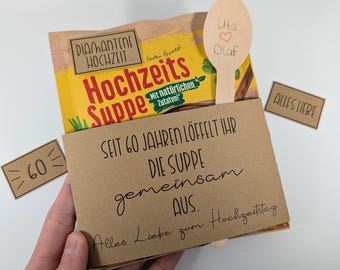 DIAMANTENE
HOCHZEIT
Guten Appetit!
Hochzeits
Suppe
Mit natürlichen
Zutaten!
Ute
Olaf
ALLES LIEBE
60
SEIT 60 JAHREN LÖFFELT IHR
DIE SUPPE
gemeinsam
AUS.
Alles Liebe zum Hochzeitstag.